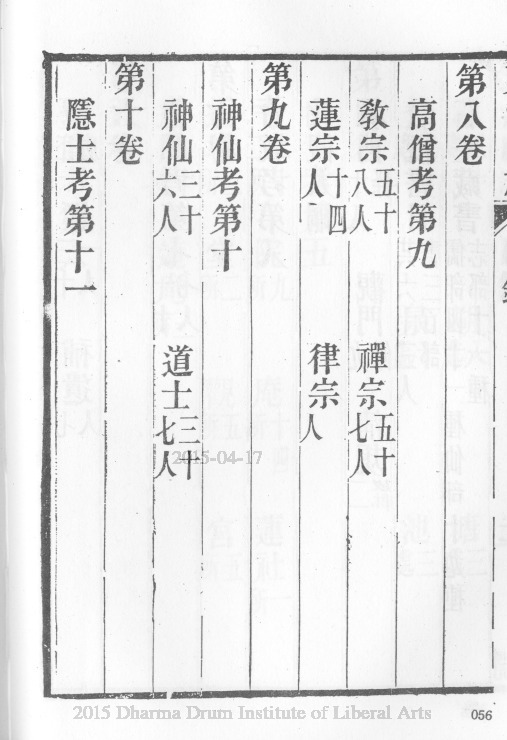 第八卷
高僧考第九
教宗五十八人 禪宗五十七人
蓮宗十四人 律宗人
第九卷
神仙考第十
神仙三十六人 道士三十七人
第十卷
隱士考第十一
2015-04-17
2015 Dharma Drum Institute of Liberal Arts
056